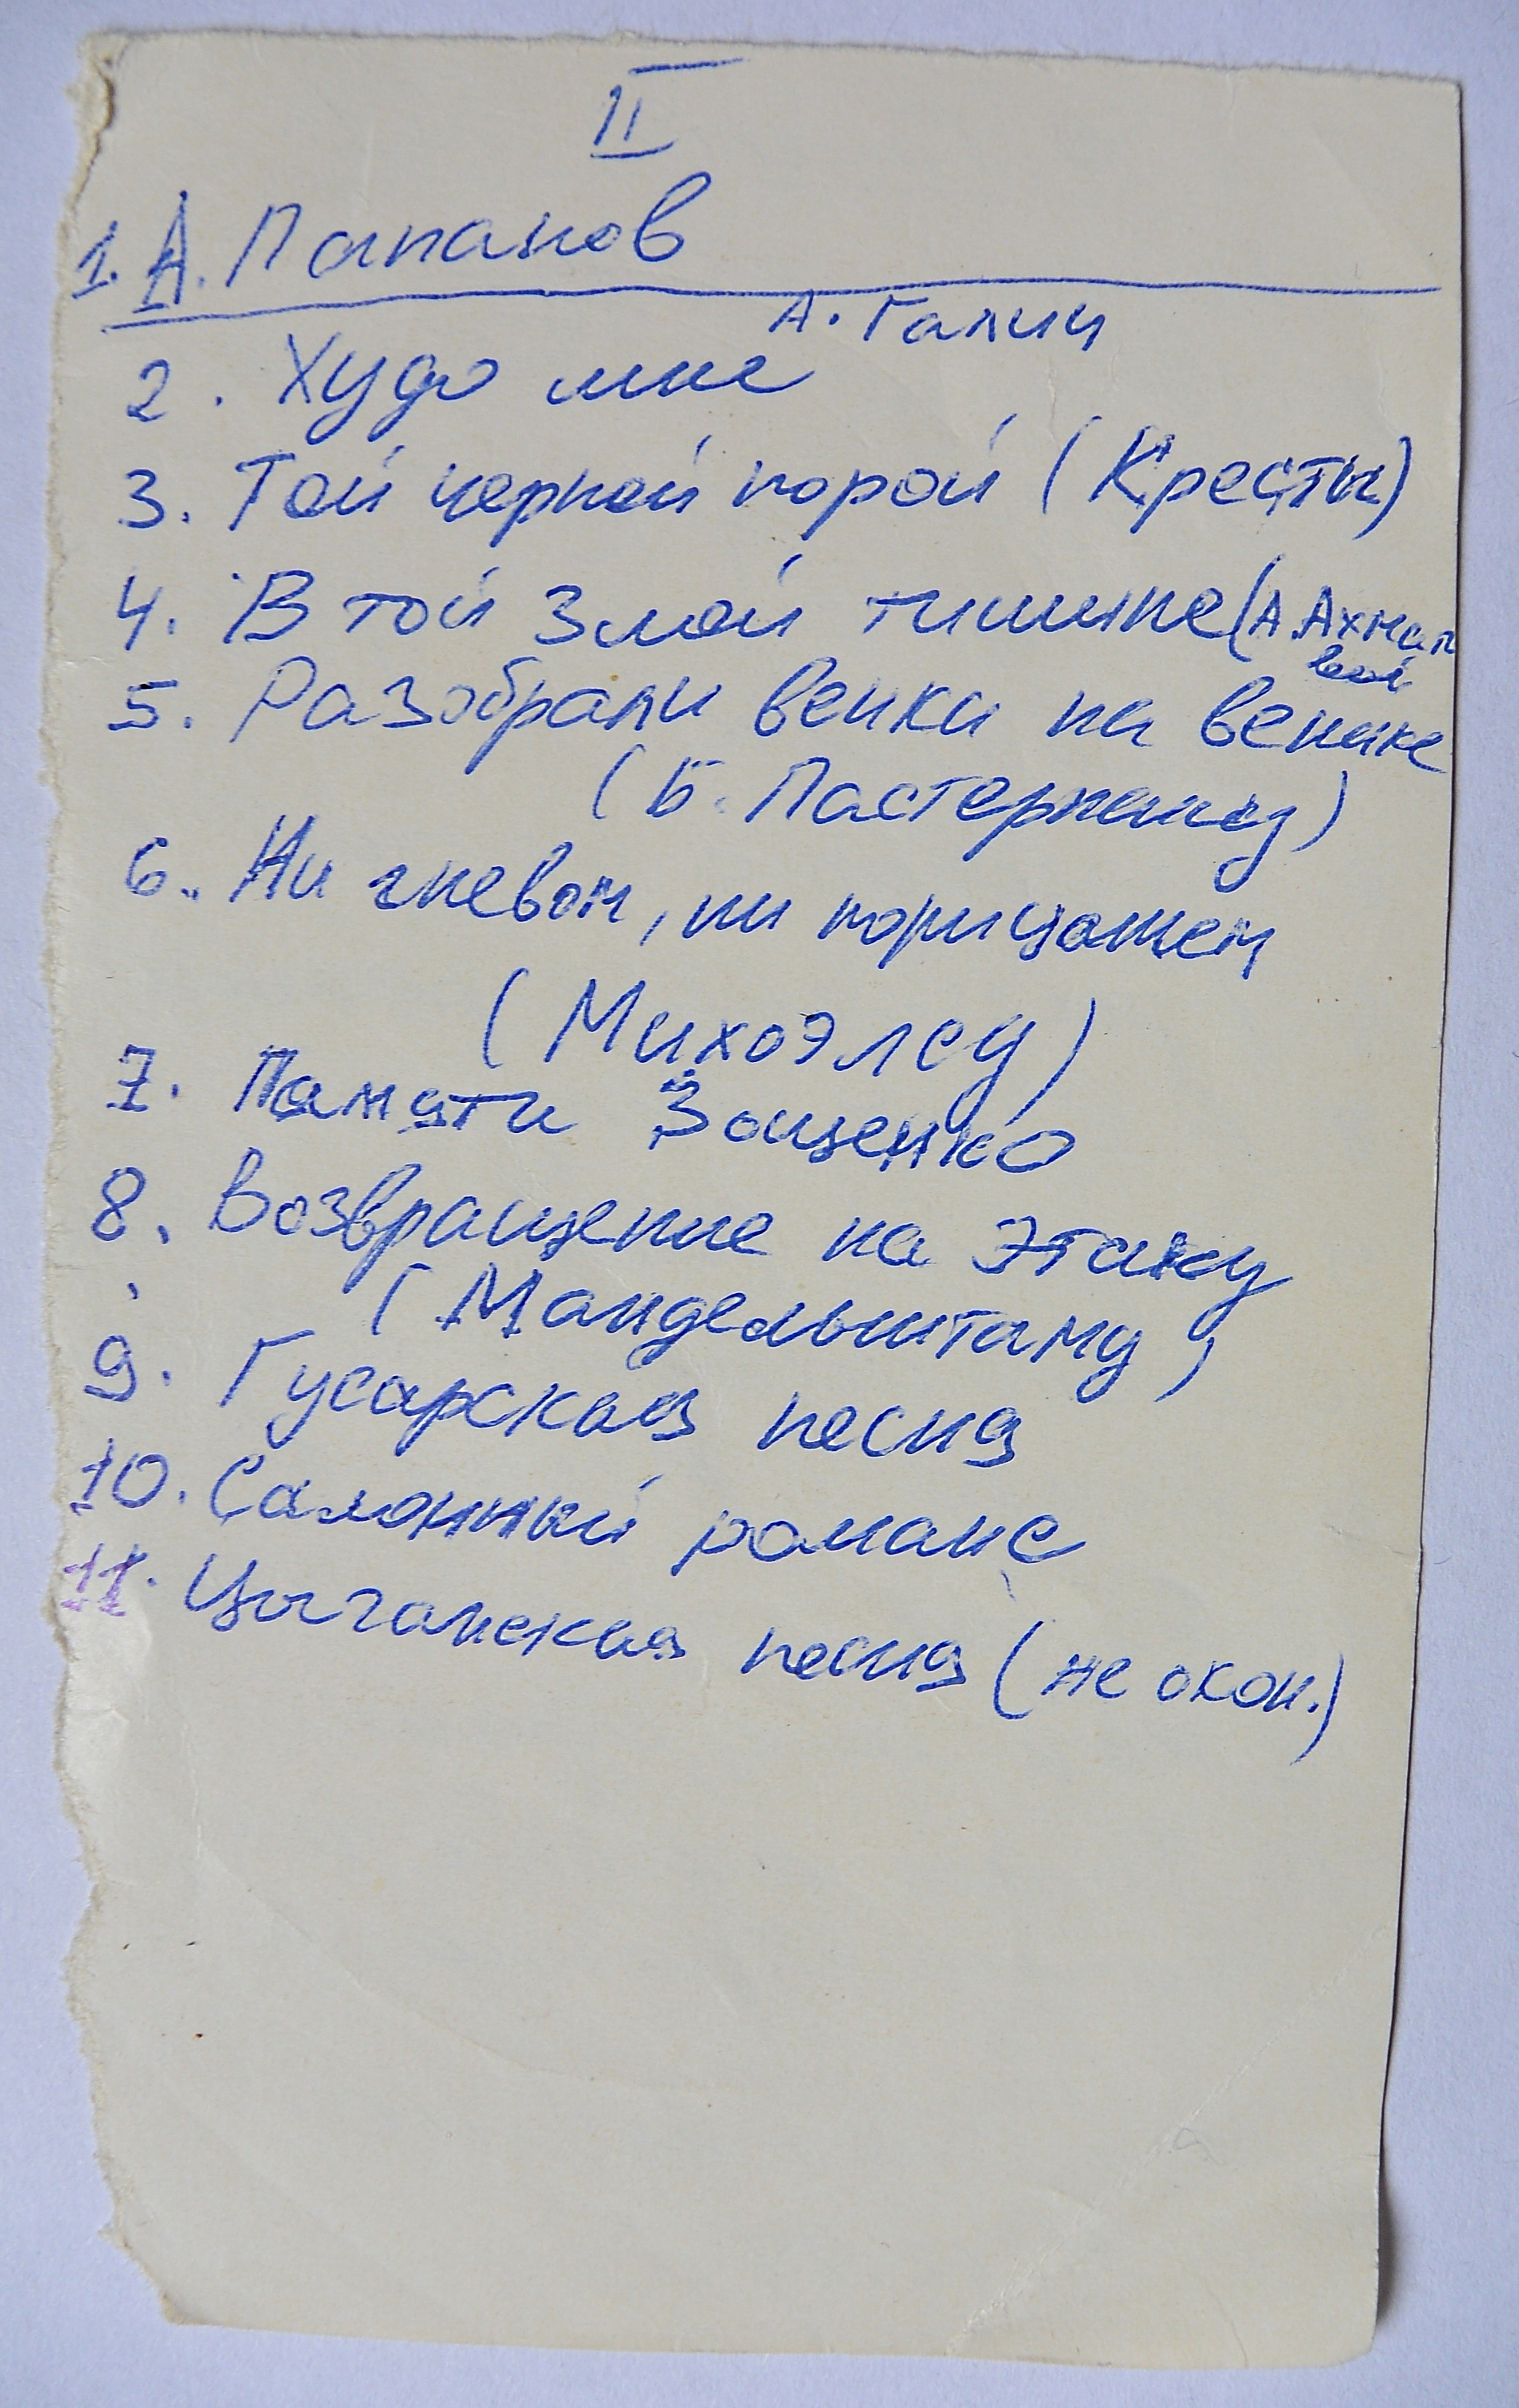 II
1. А. Папанов
А. Галич
2. Худо мне
3. Той черной порой (Кресты)
4. В той злой тишине (А. Ахмат
вой
5. Разобрали венки на венике
(Б. Пастернаку)
6. Ни гневом, ни порицанием
(Михоэлсу)
7. Памяти Зощенко
8. Возвращение на Этаку
(Мандельштаму)
9. Гусарская песня
10. Салонный романс
11. Цыганская песня (не окон.)